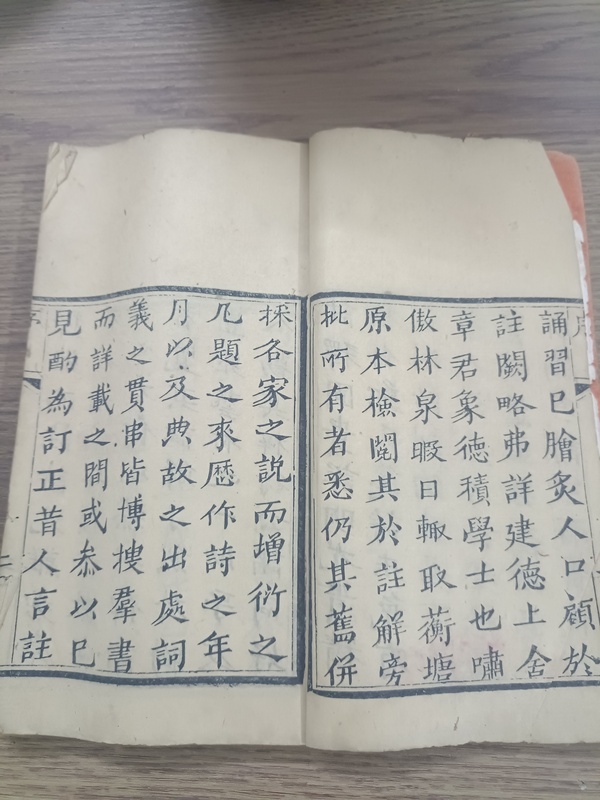 誦習已膾炙人口顧於
註闕略弗詳建德上舍
章君象德積學士也嘯
傲林泉暇日輙取蘅塘
原本檢閱其於註解旁
批所有者悉仍其舊併
採各家之說而增衍之
凡題之來歷作詩之年
月以及典故之出處詞
義之貫串皆博搜羣書
而詳載之間或叅以己
見酌為訂正昔人言註